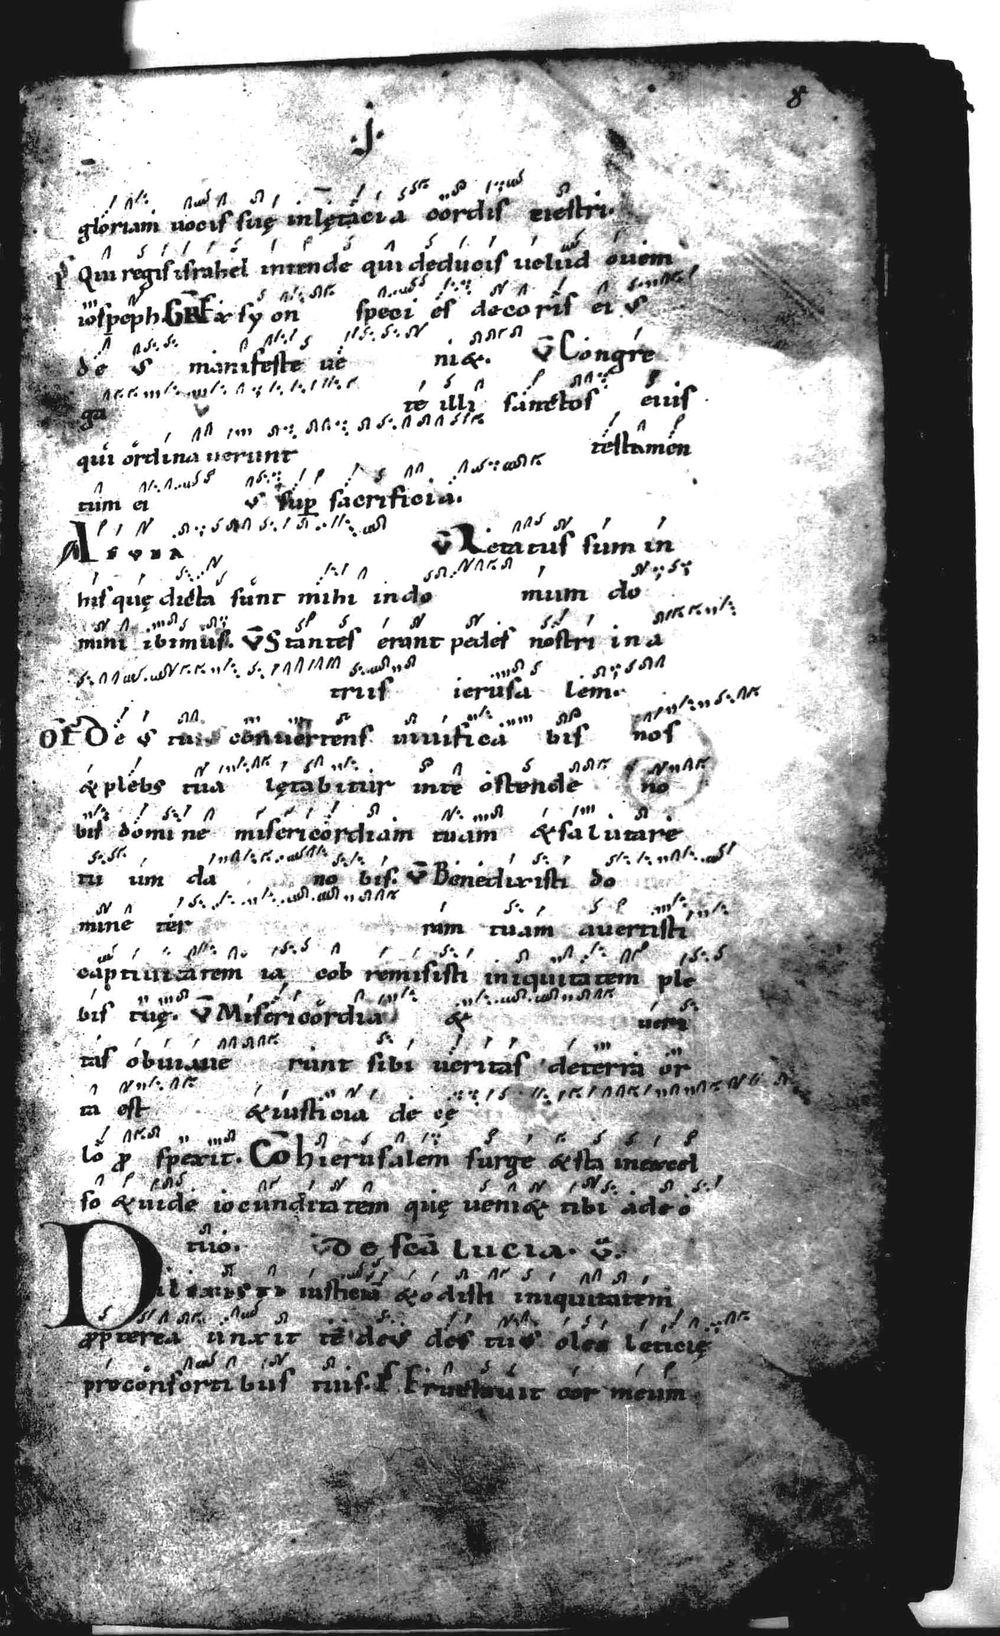 8
.j.
gloriam uocis suę inlętacia cordis uestri.
ps Qui regis israhel intende qui deducis uelud ouem
ioseph. GR Ex syon speci es decoris ei s
de s manifeste ue ni&. V Congre
ga te illi sanctos eius
qui ordinauerunt testamen
tum ei s sup sacrificia.
A e v i a V Letatus sum in
his quę dicta sunt mihi indo mum do
mini ibimus. V Stantes erant pedes nostri in a
triis ierusa lem.
OF De s tu conuertens uiuifica bis nos
& plebs tua lętabitur inte ostende no
bis domine misericordiam tuam & salutare
tu um da no bis. V Benedixisti do
mine ter ram tuam auertisti
captiuitatem ia cob remisisti iniquitatem ple
bis tuę. V Misericordia & ueri
tas obuiaue runt sibi ueritas deterra or
ta est & iusticia de cę
lo p spexit. Co hierusalem surge & sta inexcel
so & uide iocunditatem quę ueni& tibi adeo
tuo. de scā Lucia. V.
Dilexisti iusticiā & odisti iniquitatem
ppterea unxit te deus des tus oleo leticię
preconsortibus tuis. Ps Eructauit cor meum